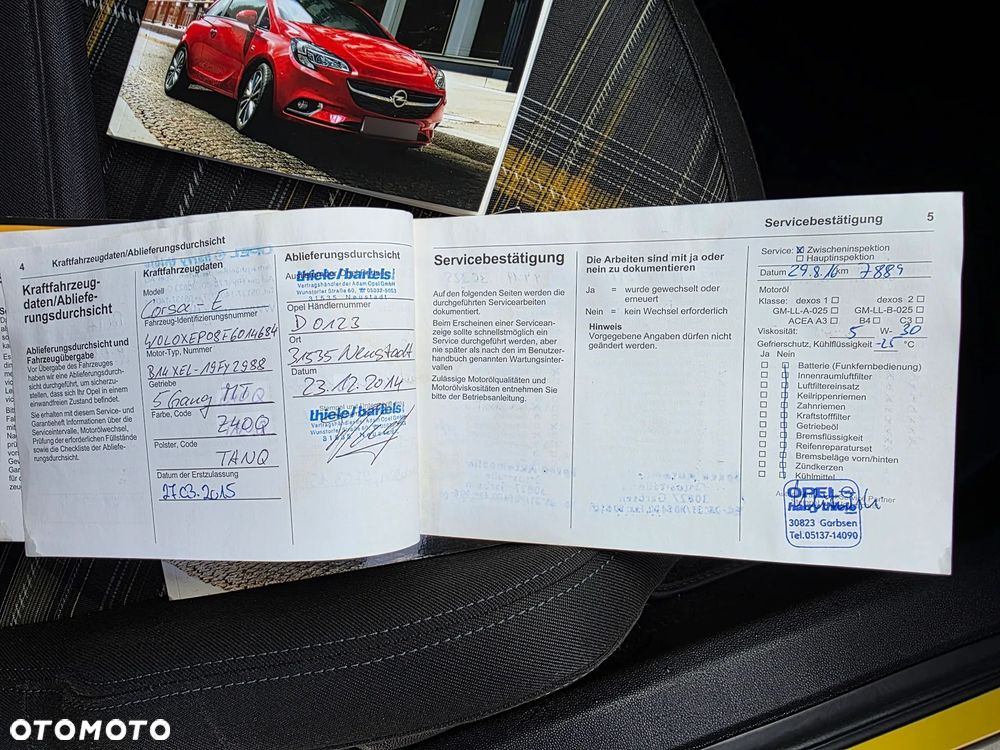 4
Kraftfahrzeugdaten/Ablieferungsdurchsicht
Kraftfahrzeug-
daten/Abliefe-
rungsdurchsicht
Ablieferungsdurchsicht und
Fahrzeugübergabe
Vor Übergabe des Fahrzeuges
haben wir eine Ablieferungsdurch-
sicht durchgeführt, um sicherzu-
stellen, dass sich Ihr Opel in einem
einwandfreien Zustand befindet.
Sie erhalten mit diesem Service- und
Garantieheft Informationen über die
Serviceintervalle, Motorölwechsel,
Prüfung der erforderlichen Füllstände
sowie die Checkliste der Abliefe-
rungsdurchsicht.
Kraftfahrzeugdaten
Modell
Corsa-E
Fahrzeug-Identifizierungsnummer
W0L0XEP08F6014684
Motor-Typ. Nummer
B14XEL-19FY2988
Getriebe
5 Gang MTQ
Farbe, Code
Z40Q
Polster, Code
TANQ
Datum der Erstzulassung
27.03.2015
Ablieferungsdurchsicht
thiele/bartels
Vertragshändler der Adam Opel GmbH
Wunstorfer Straße 60, ☎ 05032-5053
31535 Neustadt
Opel Händlernummer
D0123
Ort
31535 Neustadt
Datum
23.12.2014
thiele/bartels
Vertragshändler der Adam Opel GmbH
31535 Neustadt
Servicebestätigung
5
Servicebestätigung
Auf den folgenden Seiten werden die
durchgeführten Servicearbeiten
dokumentiert.
Beim Erscheinen einer Servicean-
zeige sollte schnellstmöglich ein
Service durchgeführt werden, aber
nie später als nach den im Benutzer-
handbuch genannten Wartungsinter-
vallen
Zulässige Motorölqualitäten und
Motorölviskositäten entnehmen Sie
bitte der Betriebsanleitung.
Die Arbeiten sind mit ja oder
nein zu dokumentieren
Ja = wurde gewechselt oder
erneuert
Nein = kein Wechsel erforderlich
Hinweis
Vorgegebene Angaben dürfen nicht
geändert werden.
Service: X Zwischeninspektion
Hauptinspektion
Datum 29.8.16 km 7889
Motoröl
Klasse: dexos 1 dexos 2
GM-LL-A-025 GM-LL-B-025
ACEA A3 B4 C3
Viskosität: 5 W- 30
Gefrierschutz, Kühlflüssigkeit -25 °C
Ja Nein
Batterie (Funkfernbedienung)
Innenraumluftfilter
Luftfiltereinsatz
Keilrippenriemen
Zahnriemen
Kraftstofffilter
Getriebeöl
Bremsflüssigkeit
Reifenreparaturset
Bremsbeläge vorn/hinten
Zündkerzen
Kühlmittel
Partner
OPEL
harry thiele
30823 Garbsen
Tel.05137-14090
OTOMOTO